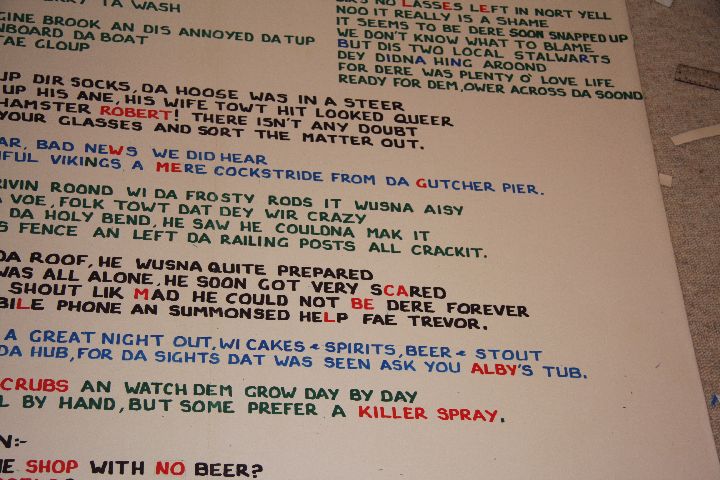 TA WASH
GINE BROOK AN DIS ANNOYED DA TUP
NBOARD DA BOAT
FAE GLOUP
NO LASSES LEFT IN NORT YELL
NOO IT REALLY IS A SHAME
IT SEEMS TO BE DERE SOON SNAPPED UP
WE DON'T KNOW WHAT TO BLAME
BUT DIS TWO LOCAL STALWARTS
DEY DIDNA HING AROOND
FOR DERE WAS PLENTY O' LOVE LIFE
READY FOR DEM, OWER ACROSS DA SOOND
UP DIR SOCKS, DA HOOSE WAS IN A STEER
UP HIS ANE, HIS WIFE TOWT HIT LOOKED QUEER
HAMSTER ROBERT! THERE ISN'T ANY DOUBT
YOUR GLASSES AND SORT THE MATTER OUT.
AR, BAD NEWS WE DID HEAR
IFUL VIKINGS A MERE COCKSTRIDE FROM DA GUTCHER PIER.
RIVIN ROOND WI DA FROSTY RODS IT WUSNA AISY
VOE, FOLK TOWT DAT DEY WIR CRAZY
DA HOLY BEND, HE SAW HE COULDNA MAK IT
S FENCE AN LEFT DA RAILING POSTS ALL CRACKIT.
DA ROOF, HE WUSNA QUITE PREPARED
WAS ALL ALONE, HE SOON GOT VERY SCARED
SHOUT LIK MAD HE COULD NOT BE DERE FOREVER
BILE PHONE AN SUMMONSED HELP FAE TREVOR.
A GREAT NIGHT OUT, WI CAKES & SPIRITS, BEER & STOUT
DA HUB, FOR DA SIGHTS DAT WAS SEEN ASK YOU ALBY'S TUB.
CRUBS AN WATCH DEM GROW DAY BY DAY
L BY HAND, BUT SOME PREFER A KILLER SPRAY.
N:-
HE SHOP WITH NO BEER?